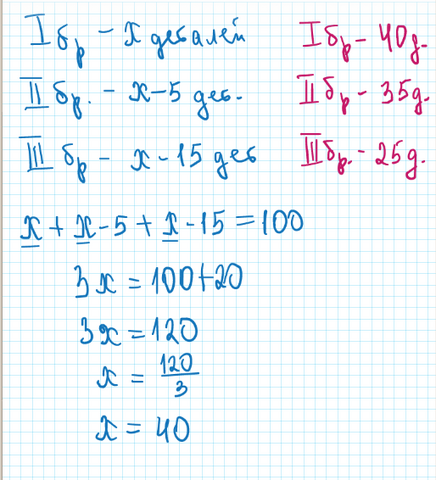 I бр - x деталей
II бр. - x-5 дет.
III бр - x-15 дет
I бр - 40 д.
II бр - 35 д.
III бр. - 25 д.
x + x - 5 + x - 15 = 100
3x = 100+20
3x = 120
x = 120/3
x = 40